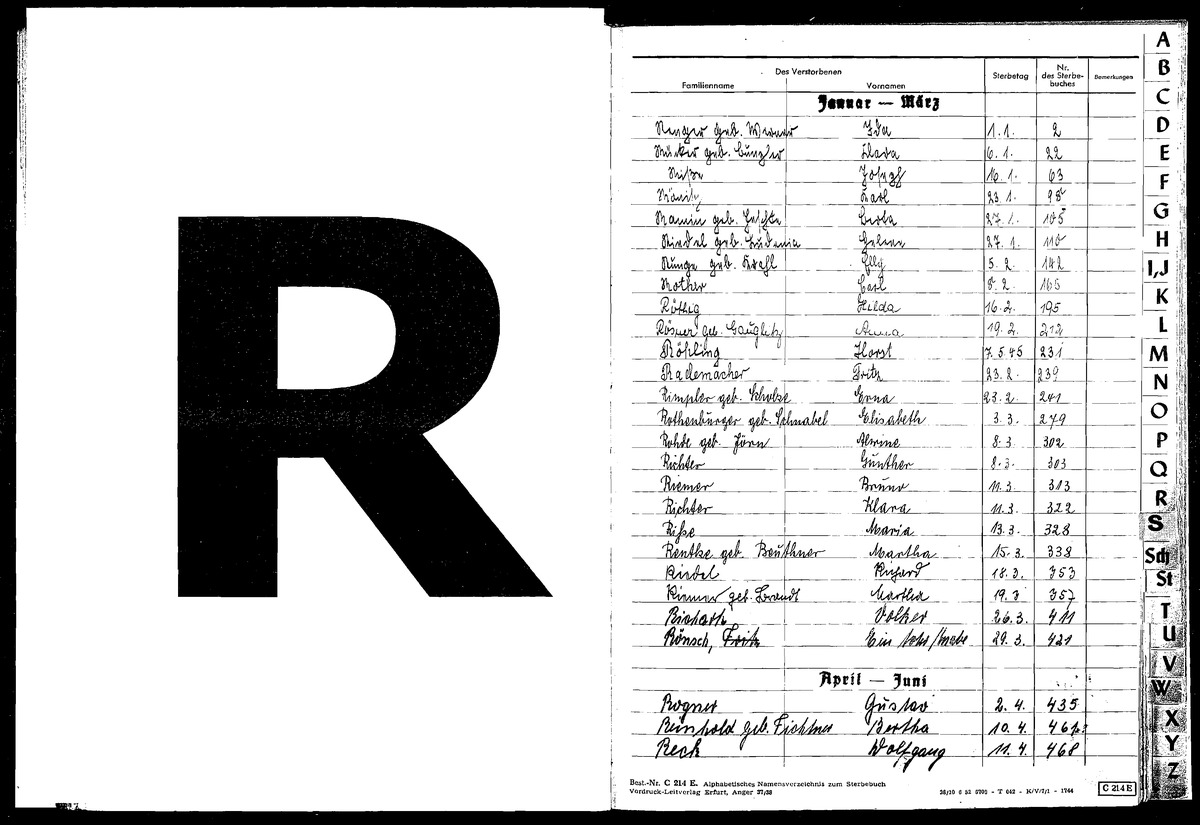 R
Des Verstorbenen
Familienname Vornamen Sterbetag Nr. des Sterbebuches Bemerkungen
Januar — März
Renger geb. Werner Ida 1.1. 2
geb. Clara 6.1. 22
Josef 16.1. 63
Karl 23.1. 98
geb. 27.1. 105
Riedel geb. Helene 27.1. 110
Runge geb. Krahl Elly 5.2. 142
Rother Carl 8.2. 165
Röthig Hilda 16.2. 195
Rösner geb. Gauglitz Anna 19.2. 212
Rößling Horst 7.5.45 231
Rademacher Fritz 23.2. 239
Rimpler geb. Scholze Erna 23.2. 241
Rothenbürger geb. Schnabel Elisabeth 3.3. 279
Rohde geb. Jörn Alwine 8.3. 302
Richter Günther 8.3. 303
Riemer Bruno 11.3. 313
Richter Klara 11.3. 322
Riße Maria 13.3. 328
Rentke geb. Beuthner Martha 15.3. 338
Riedel Richard 18.3. 353
Riemer geb. Brandt Martha 19.3 357
Volker 26.3. 411
Rönsch, Fritz Ein 29.3. 421
April — Juni
Rogner Gustav 2.4. 435
Reinhold geb. Fichtner Bertha 10.4.
Reck Wolfgang 11.4. 468
Best.-Nr. C 214 E. Alphabetisches Namensverzeichnis zum Sterbebuch
Vordruck-Leitverlag Erfurt, Anger 37/38
C 214 E
A
B
C
D
E
F
G
H
I,J
K
L
M
N
O
P
Q
R
S
Sch
St
T
U
V
W
X
Y
Z